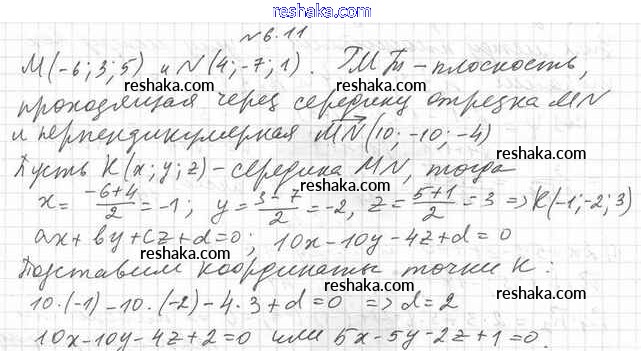 reshaka.com
№6.11
M(-6; 3; 5) и N(4; -7; 1). ГМТ - плоскость,
reshaka.com reshaka.com
проходящая через середину отрезка MN
и перпендикулярная MN(10; -10; -4)
reshaka.com reshaka.com
Пусть K(x; y; z) - середина MN, тогда
x = (-6+4)/2 = -1; y = (3-7)/2 = -2, z = (5+1)/2 = 3 => K(-1; -2; 3)
reshaka.com reshaka.com
ax + by + cz + d = 0; 10x - 10y - 4z + d = 0
Подставим координаты точки K:
reshaka.com reshaka.com
10·(-1) - 10·(-2) - 4·3 + d = 0 => d = 2
10x - 10y - 4z + 2 = 0 или 5x - 5y - 2z + 1 = 0.
reshaka.com